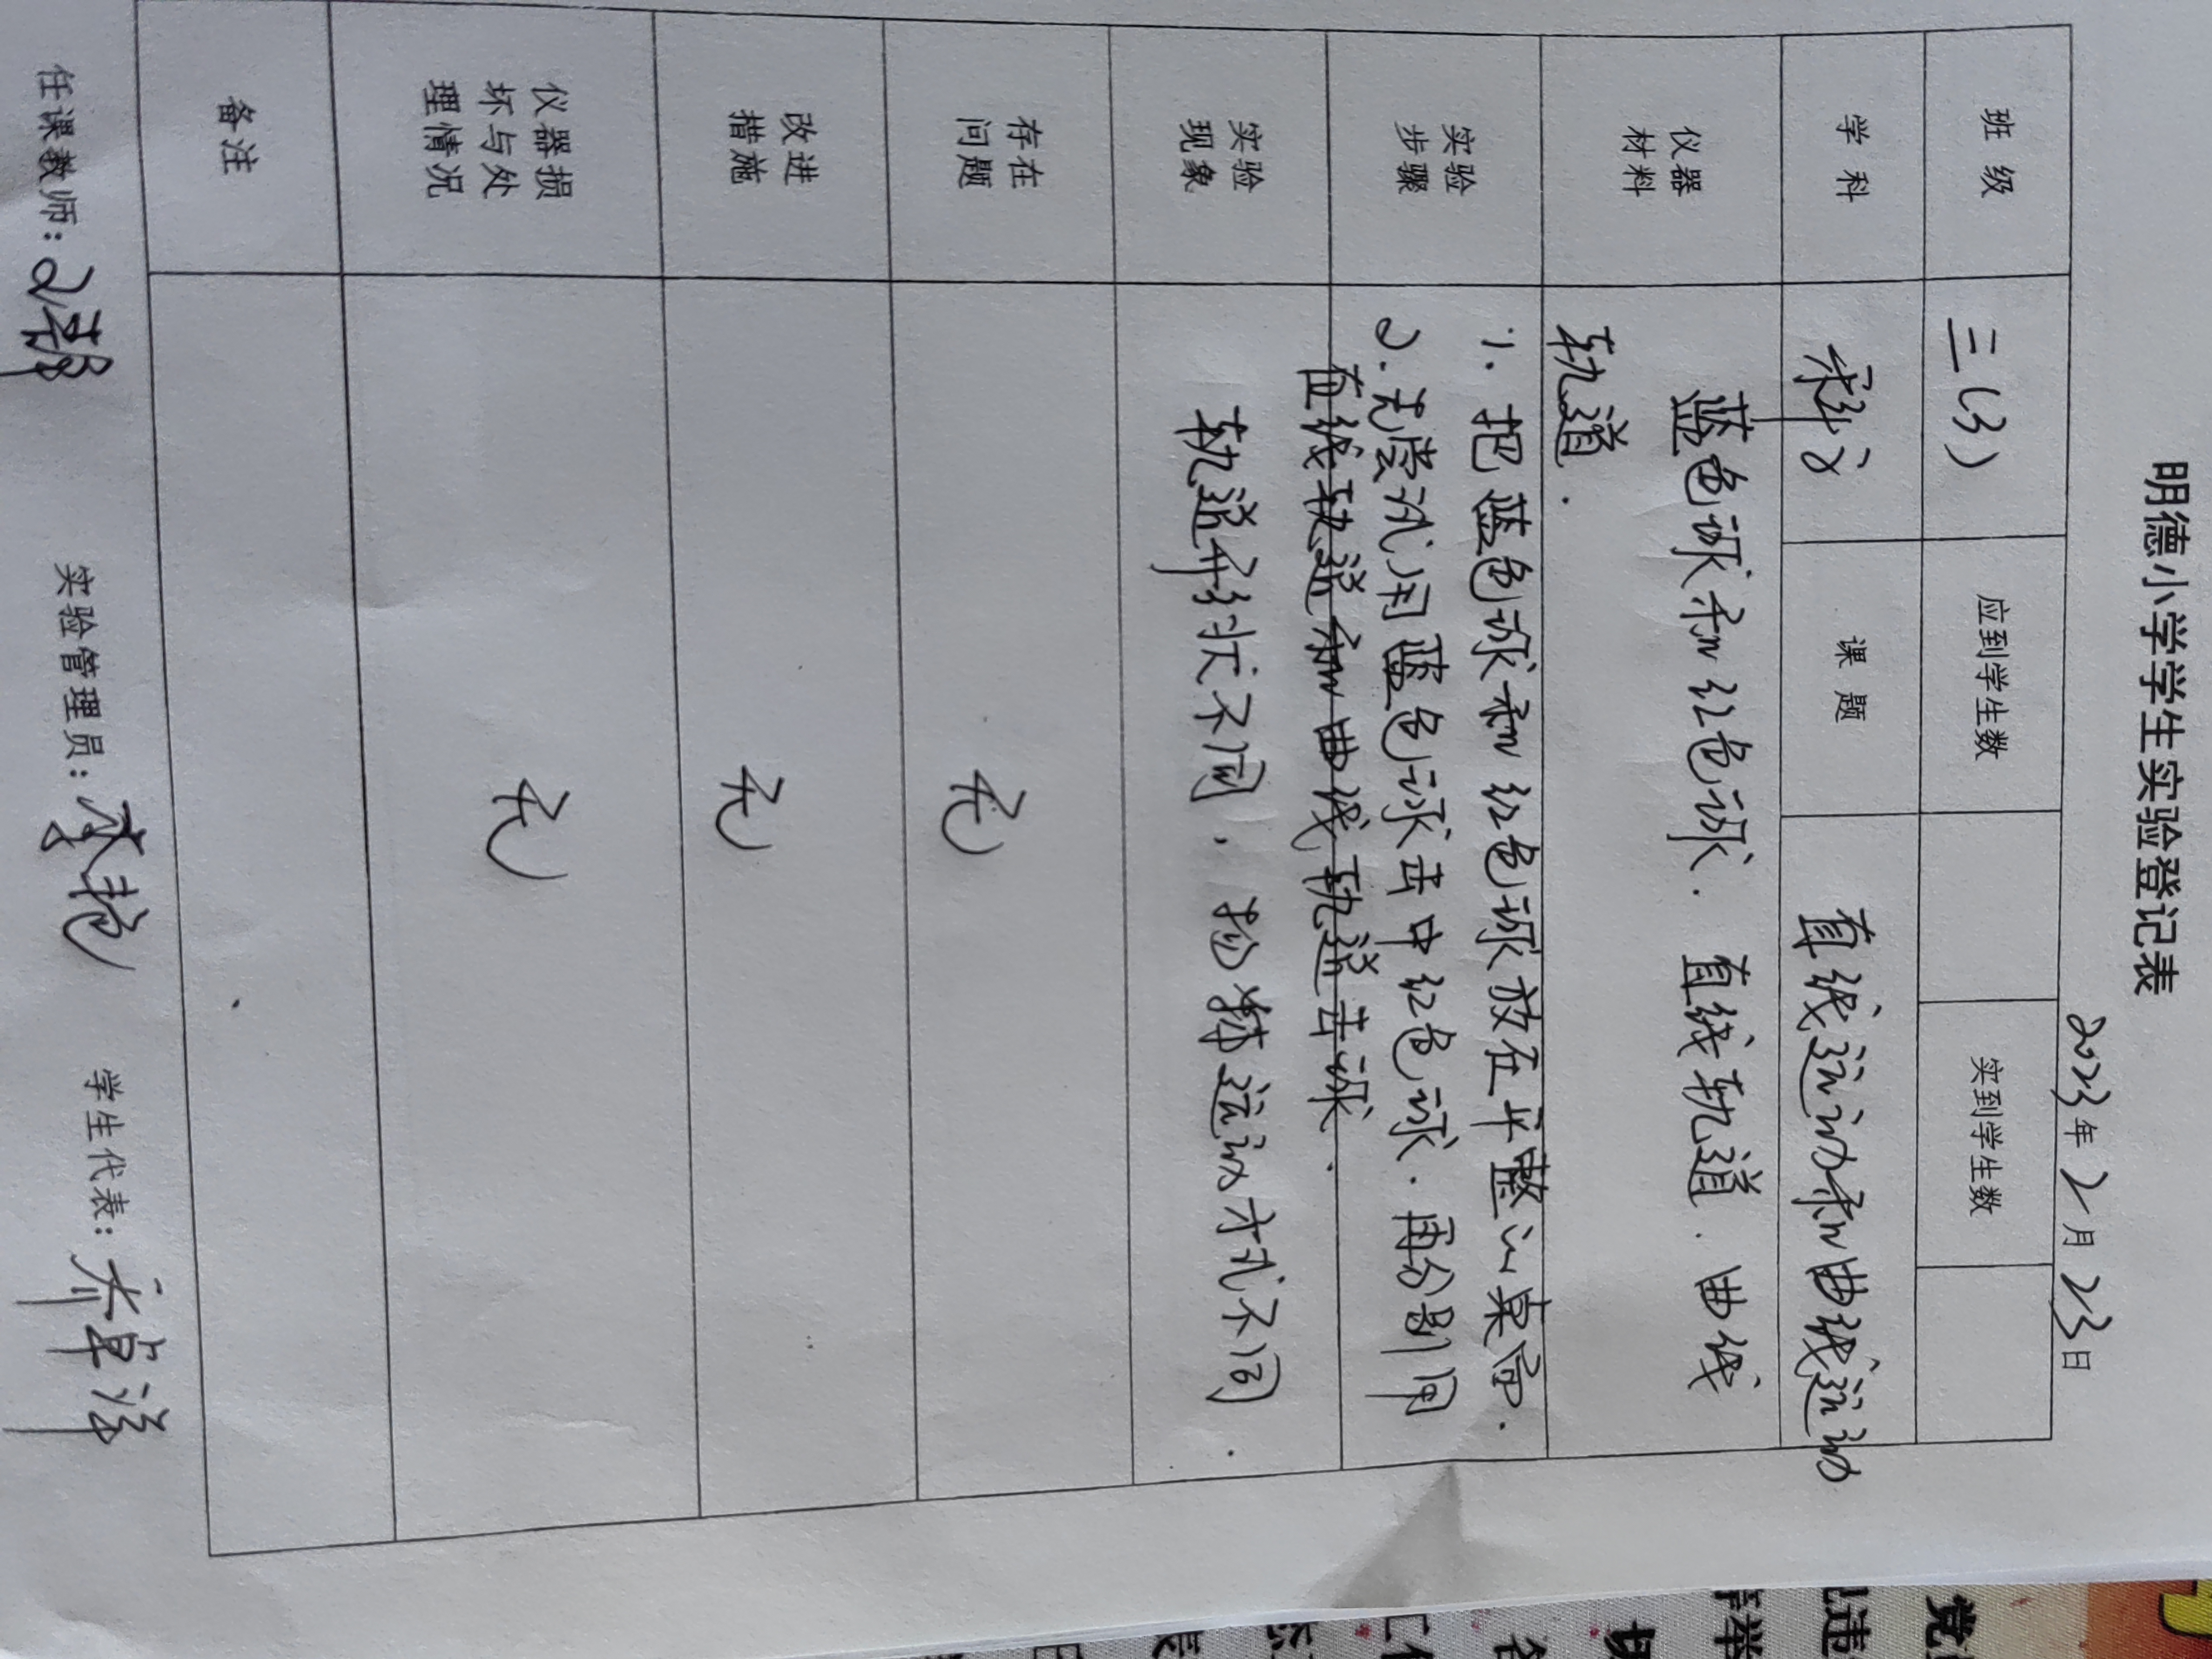 明德小学学生实验登记表
2023年2月23日
班 级 三(3) 应到学生数 实到学生数
学 科 科学 课 题 直线运动和曲线运动
仪器
材料
蓝色球和红色球. 直线轨道. 曲线
轨道.
实验
步骤
1. 把蓝色球和红色球放在平整的桌面.
2. 先尝试用蓝色球击中红色球. 再分别用
直线轨道和曲线轨道击球.
实验
现象
轨道形状不同, 物体运动方式不同.
存在
问题
无
改进
措施
无
仪器损
坏与处
理情况
无
备注
任课教师: 实验管理员: 李艳 学生代表: 乔卓洋